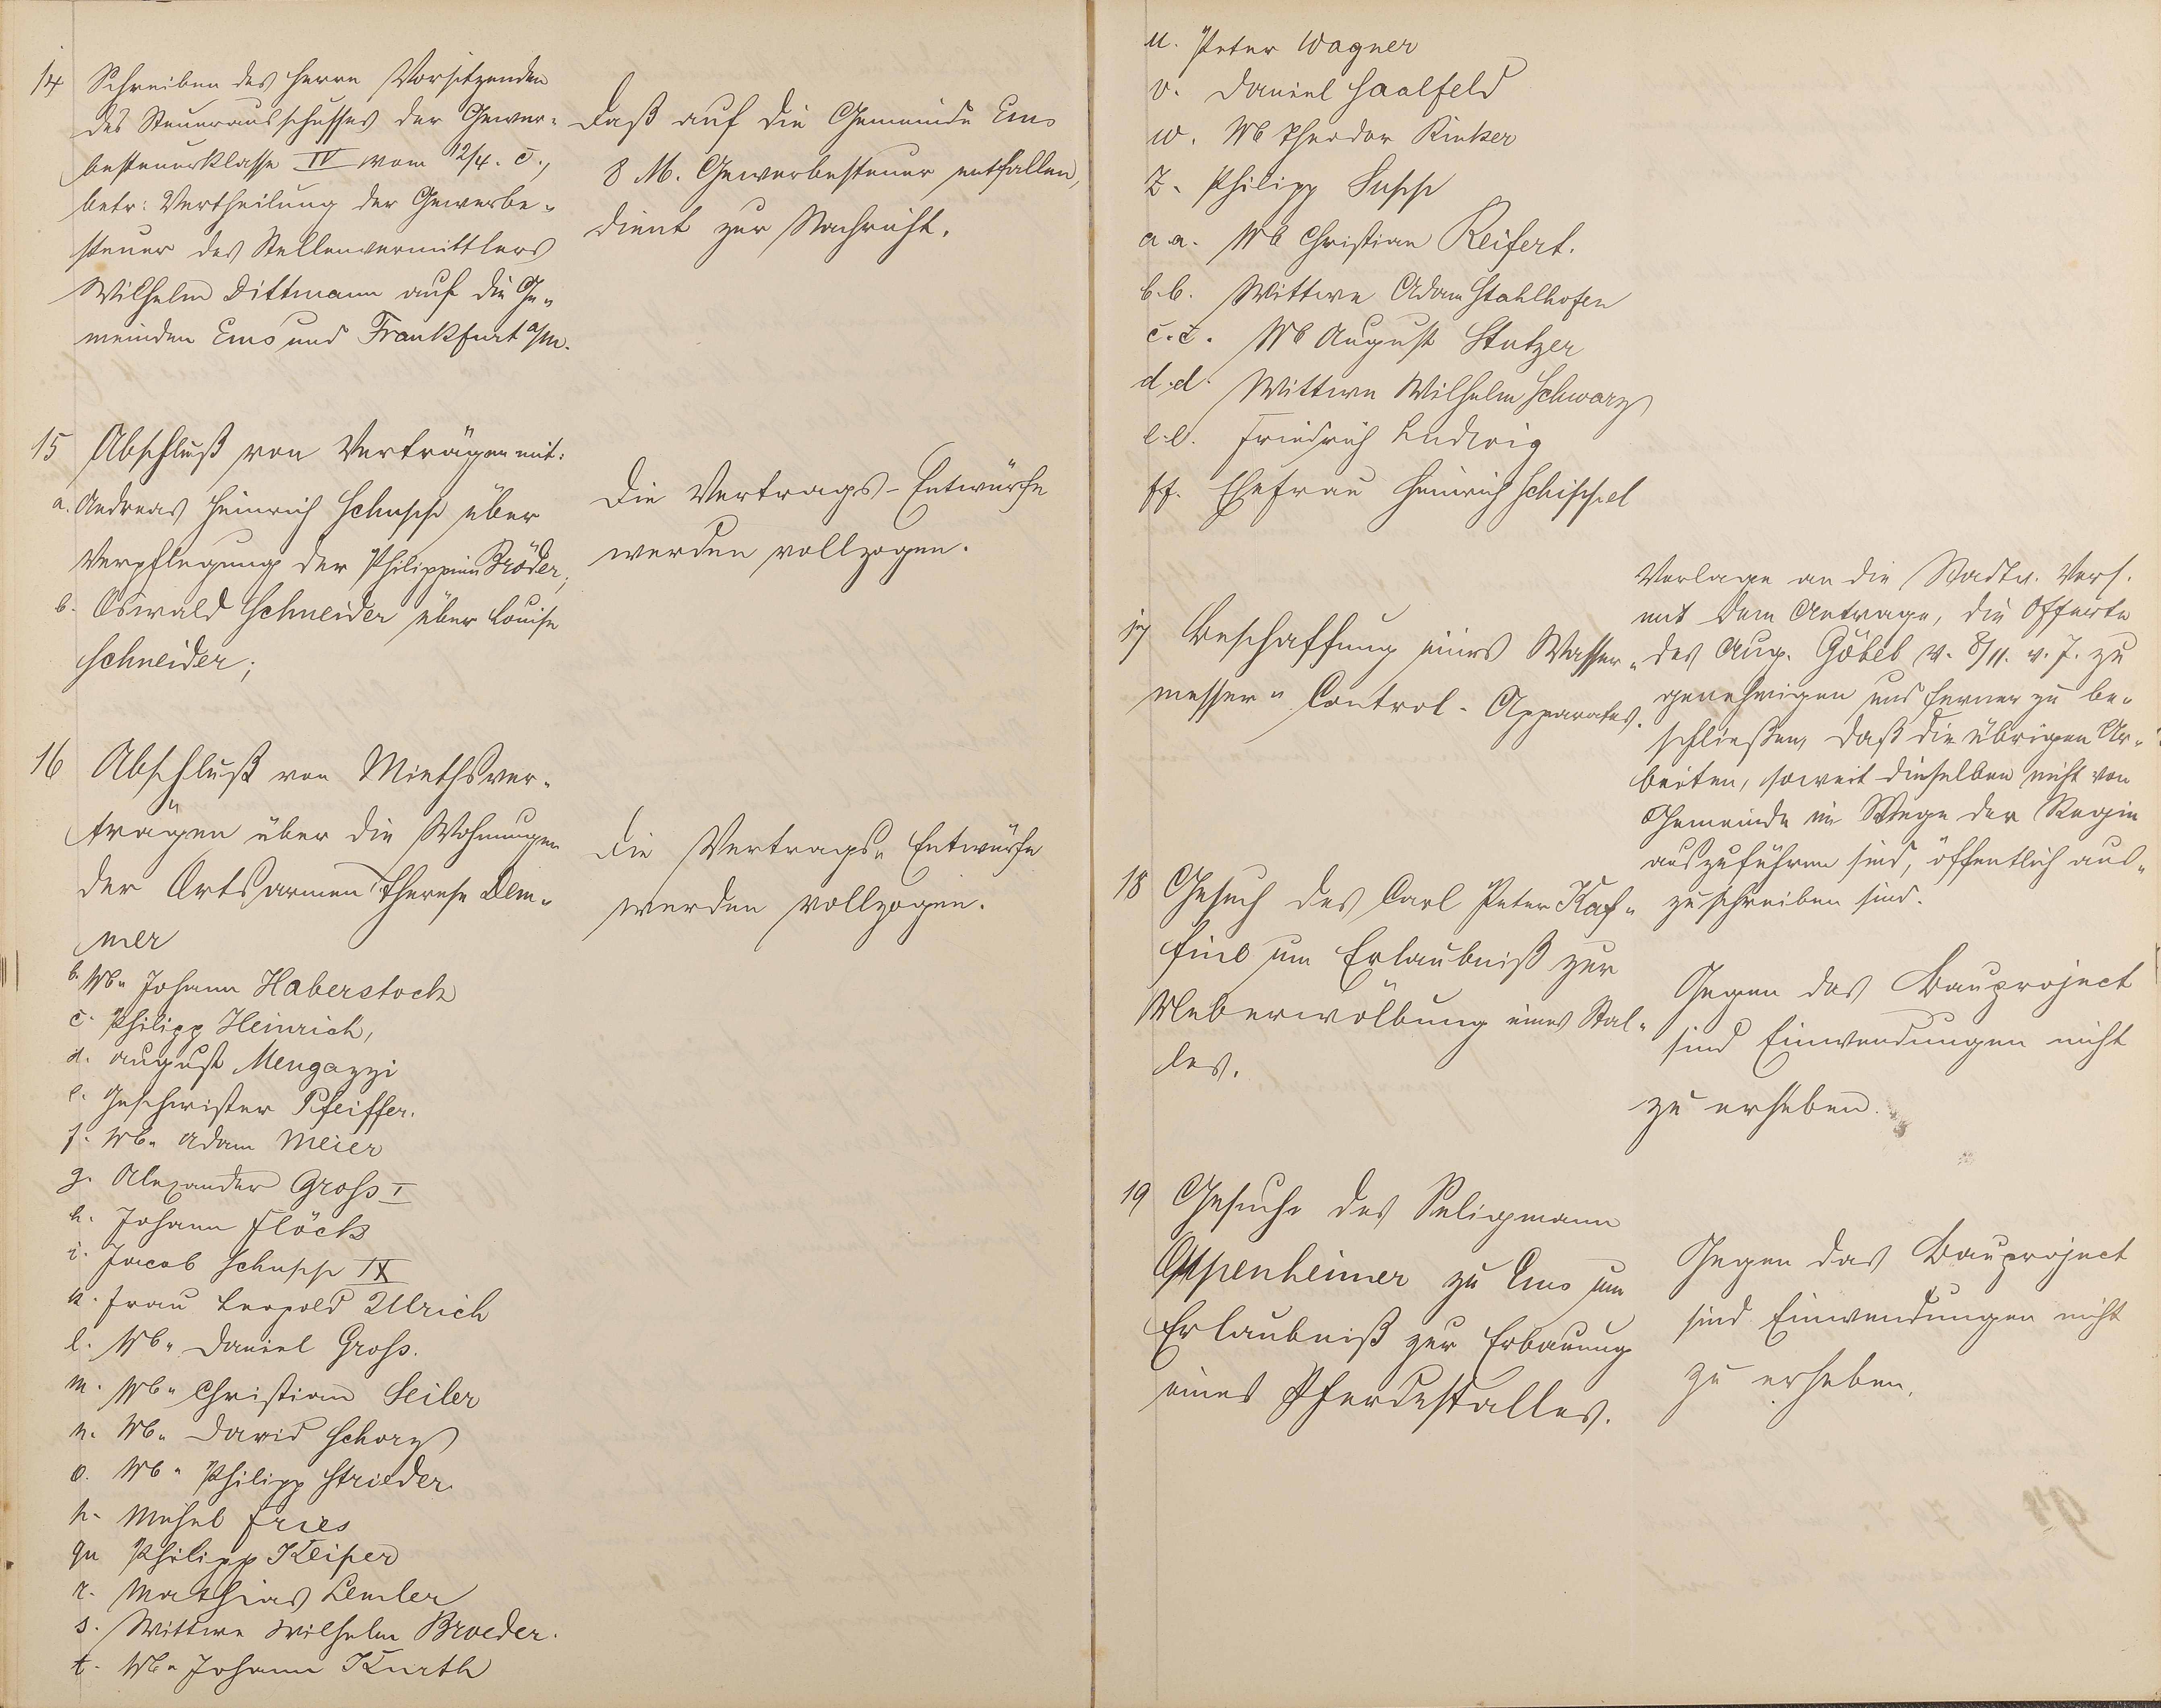 14 Schreiben des Herrn Vorsitzenden
des Steuerausschusses der Gewer-
besteuerklasse IV vom 12/4. c.,
betr: Vertheilung der Gewerbe-
steuer des Stellenvermittlers
Wilhelm Dittmann auf die Ge-
meinden Ems und Frankfurt a/M.
Daß auf die Gemeinde Ems
8 M. Gewerbesteuer entfallen,
dient zur Nachricht.
15 Abschluß von Verträgen mit:
a. Andreas Heinrich Schupp über
Verpflegung der Philippine Bröder;
b. Oswald Schneider über Louise
Schneider;
Die Vertrags-Entwürfe
werden vollzogen.
16 Abschluß von Miethsver-
trägen über die Wohnungen
der Ortsarmen Therese Dem-
mer
b. Wb. Johann Haberstock
c. Philipp Heinrich,
d. August Mengazzi
e. Geschwister Pfeiffer.
f. Wb. Adam Meier
g. Alexander Gross I
h. Johann Flöck
i. Jacob Schupp IX
k. Frau Leopold Ulrich
l. Wb. Daniel Gross.
m. Wb. Christian Seiler
n. Wb. David Schorz
o. Wb. Philipp Strieder
p. Michel Fries
q. Philipp Keiper
r. Mathias Lemler
s. Wittwe Wilhelm Broeder.
t. Wb. Johann Kurth
Die Vertrags-Entwürfe
werden vollzogen.
u. Peter Wagner
v. Daniel Saalfeld
w. Wb Theodor Rinker
Z. Philipp Supp
a.a. Wb Christian Reifert.
b.b. Wittwe Adam Stahlhofen
c.c. Wb August Stutzer
d.d. Wittwe Wilhelm Schwarz
e.e. Friedrich Ludwig
ff. Ehefrau Heinrich Schippel
17 Beschaffung eines Wasser-
messer-Control-Apparates.
Vorlage an die Stadtv. Vers.
mit dem Antrage, die Offerte
des Aug. Göbel v. 8/11. v. J. zu
genehmigen und ferner zu be-
schließen, daß die übrigen Ar-
beiten, soweit dieselben nicht von
Gemeinde im Wege der Regie
auszuführen sind, öffentlich aus-
zuschreiben sind.
18 Gesuch des Carl Peter Kaf-
fine um Erlaubniß zur
Ueberwölbung eines Stal-
les.
Gegen das Bauproject
sind Einwendungen nicht
zu erheben.
19 Gesuch des Seligmann
Oppenheimer zu Ems um
Erlaubniß zur Erbauung
eines Pferdestalles.
Gegen das Bauproject
sind Einwendungen nicht
zu erheben.